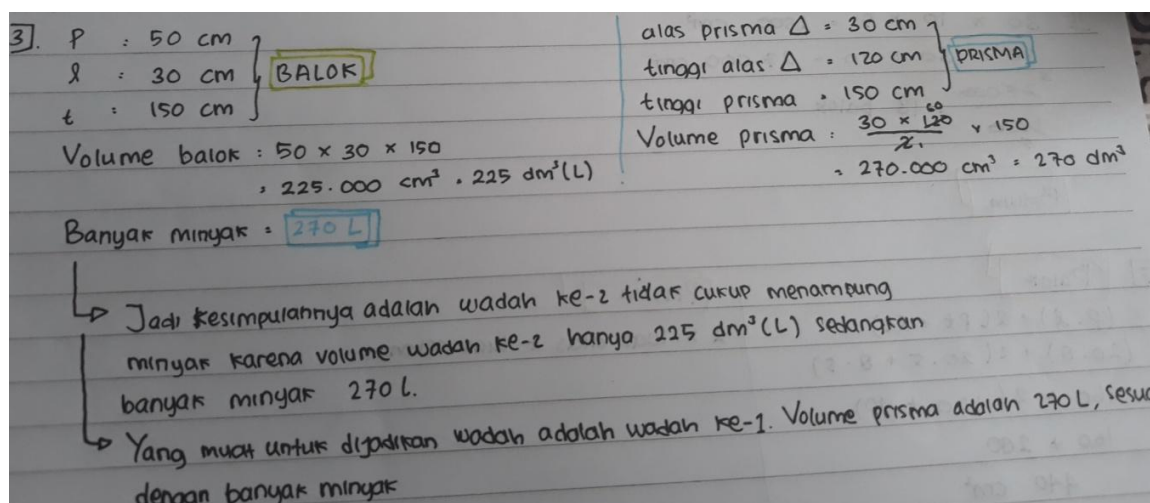 3. P : 50 cm
l : 30 cm
t : 150 cm
BALOK
Volume balok : 50 × 30 × 150
= 225.000 cm³ = 225 dm³ (L)
alas prisma Δ = 30 cm
tinggi alas Δ = 120 cm
tinggi prisma = 150 cm
PRISMA
Volume prisma : 30 × 120 60 / 2 × 150
= 270.000 cm³ = 270 dm³
Banyak minyak = 270 L
Jadi kesimpulannya adalah wadah ke-2 tidak cukup menampung
minyak karena volume wadah ke-2 hanya 225 dm³ (L) sedangkan
banyak minyak 270 L.
Yang muat untuk dijadikan wadah adalah wadah ke-1. Volume prisma adalah 270 L, sesua
dengan banyak minyak